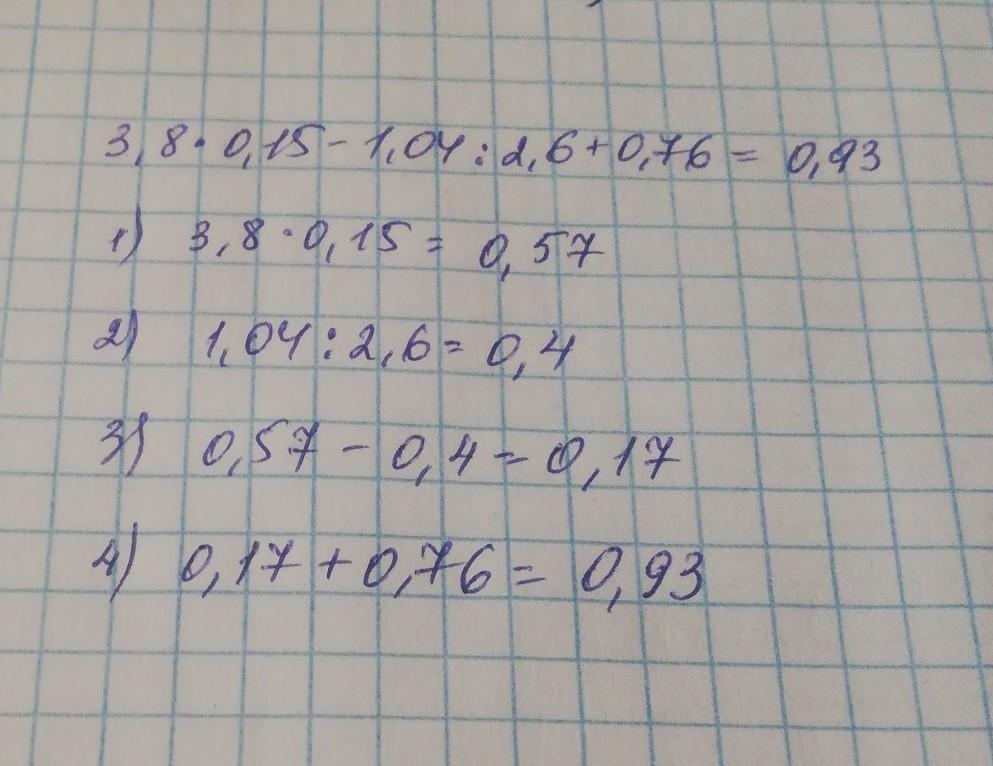 3,8·0,15-1,04:2,6+0,76=0,93
1) 3,8·0,15=0,57
2) 1,04:2,6=0,4
3) 0,57-0,4=0,17
4) 0,17+0,76=0,93